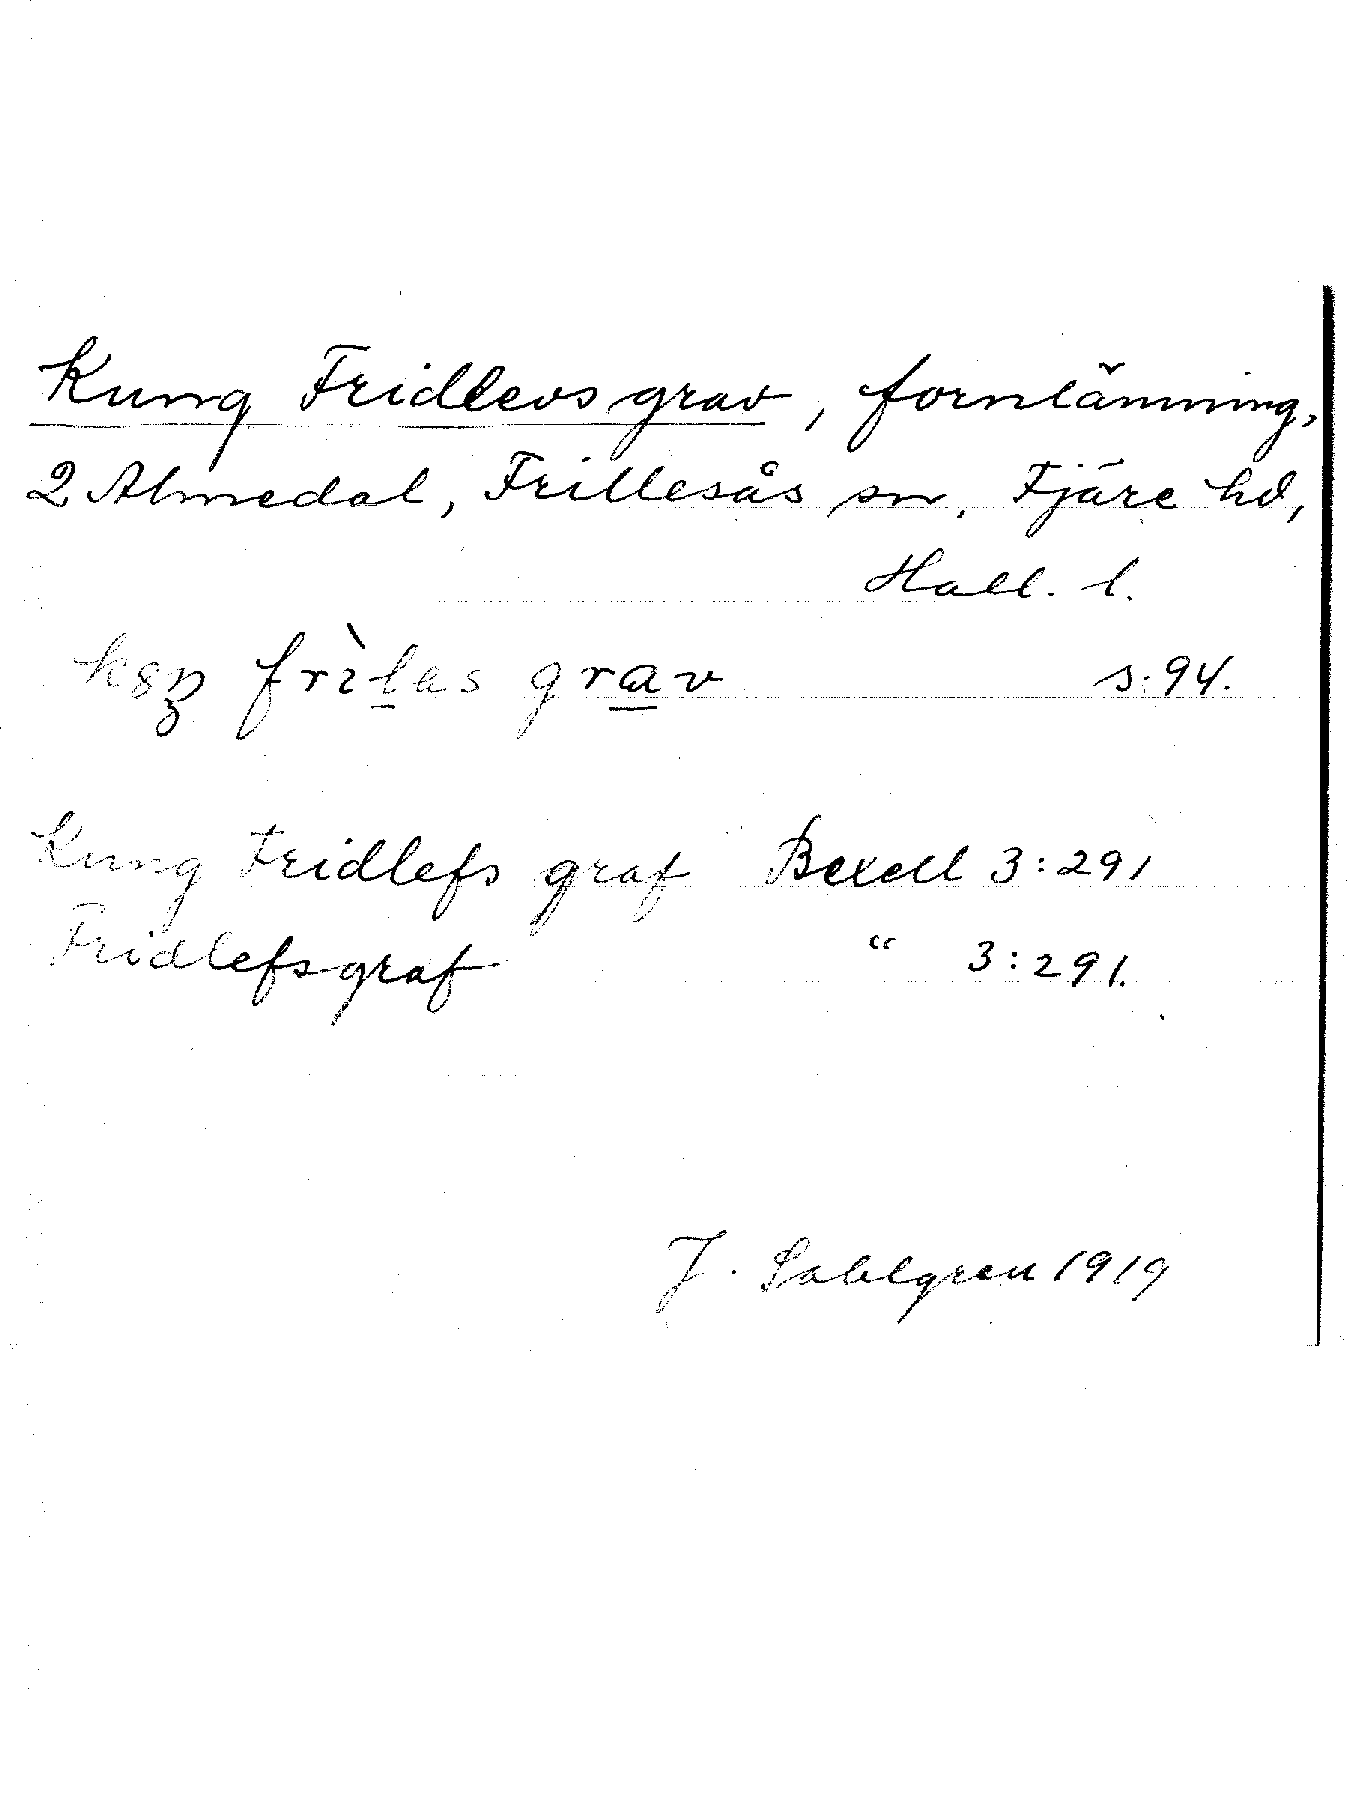 Kung Fridlevs grav, fornlämning,
2 Almedal, Frillesås sn, Fjäre hd,
Hall. l.
frìlas grav s. 94.
Kung Fridlefs graf Bexell 3:291
Fridlefsgraf " 3:291.
J. Sahlgren 1919